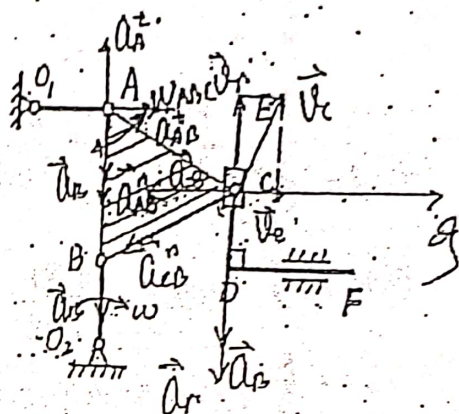 a⃗_A^t
O₁
A
W_ABC
v⃗_r
E
v⃗_c
a⃗_AB^t
a⃗_B
a⃗_AB^n
C
v⃗_e
B
a⃗_CB^n
D
F
a⃗_B
ω
O₂
a⃗_r
a⃗_B